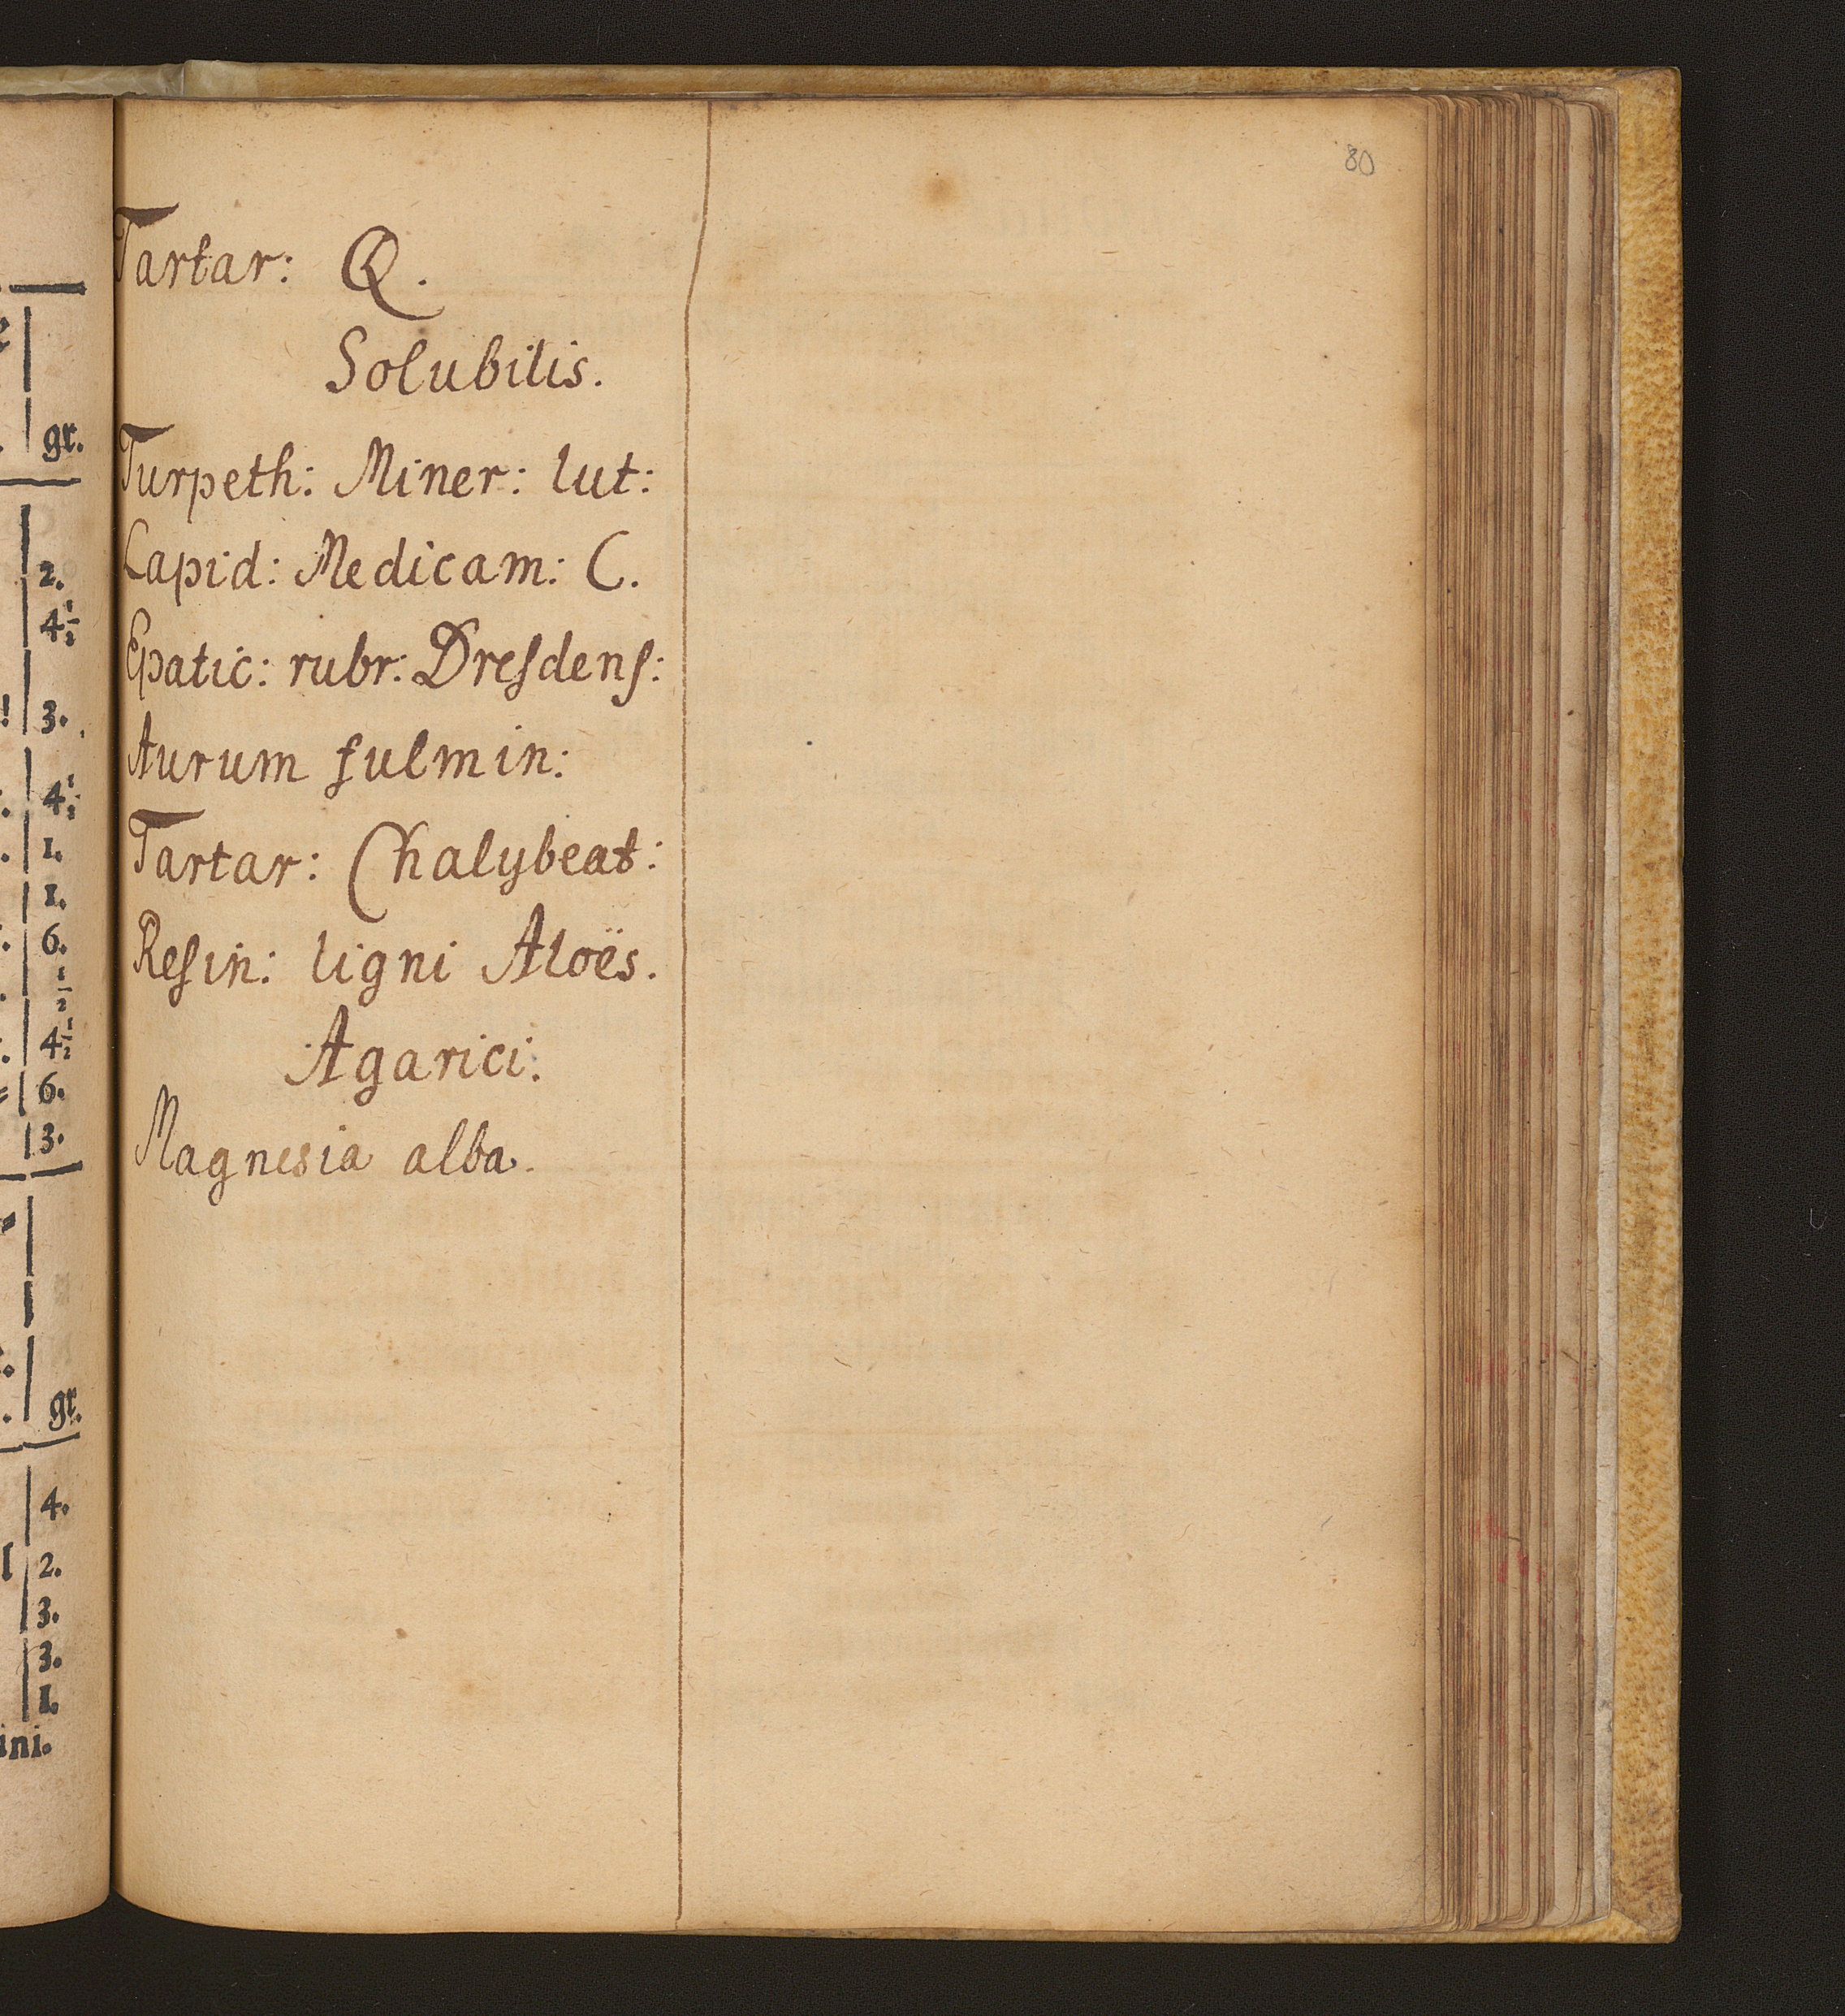 80
Tartar: Q.
Solubilis.
Turpeth: Miner: lut:
Lapid: Medicam: C.
Epatic: rubr: Dreſdenſ:
Aurum fulmin:
Tartar: Chalybeat:
Reſin: ligni Aloës.
Agarici:
Magnesia alba.
gr.
2.
4 1/2
3.
4 1/2
1.
1.
6.
1/2
4 1/2
6.
3.
gr.
4.
2.
3.
3.
1.
ini.